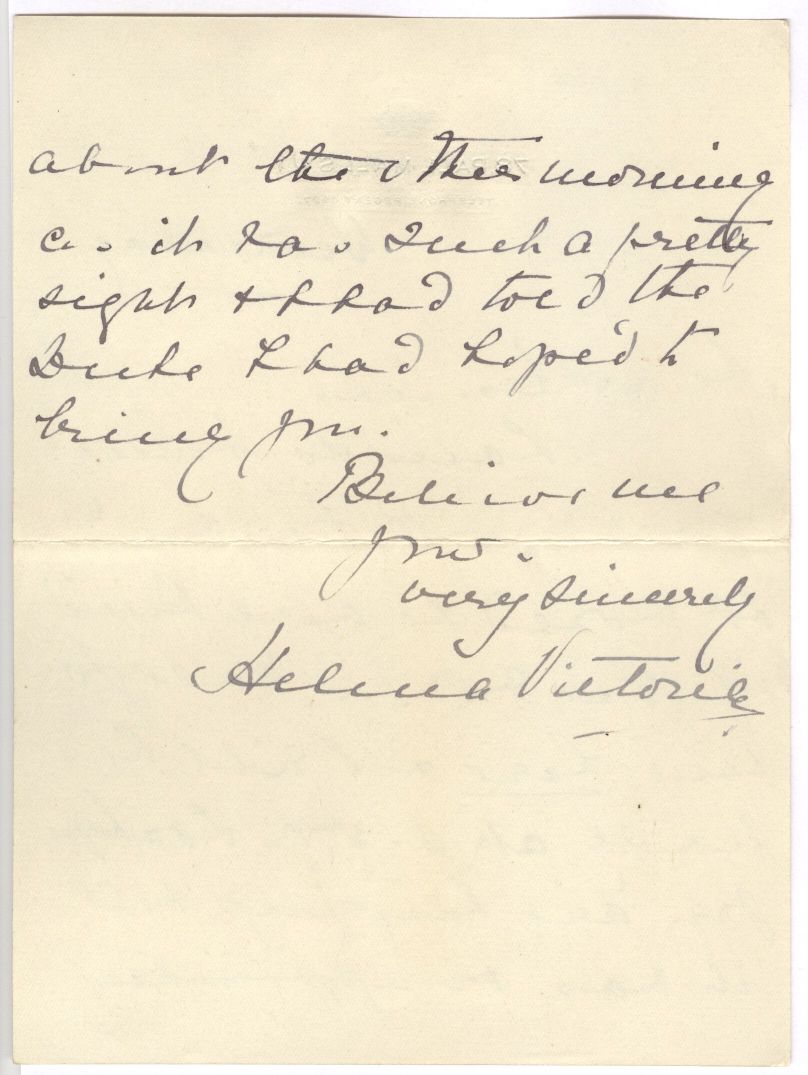 about the other morning
as it was such a pretty
sight & I had told the
Duke I had hoped to
bring you.
Believe me
yours
very sincerely
Helena Victoria